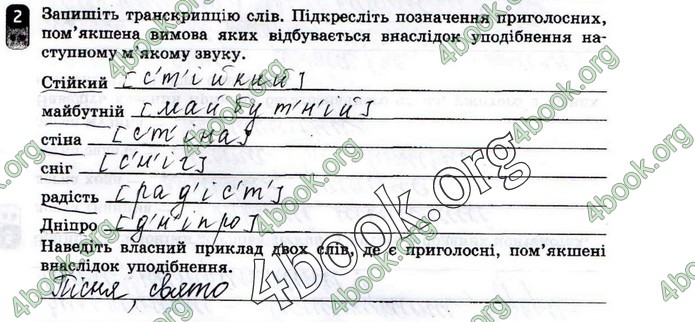 2 Запишіть транскрипцію слів. Підкресліть позначення приголосних,
пом'якшена вимова яких відбувається внаслідок уподібнення на-
ступному м'якому звуку.
Стійкий [с'т'ійкий]
майбутній [майбут'н'ій]
стіна [с'т'іна]
сніг [с'н'іг]
радість [рад'іс'т']
Дніпро [д'н'іпро]
Наведіть власний приклад двох слів, де є приголосні, пом'якшені
внаслідок уподібнення.
Пісня, свято
4book.org